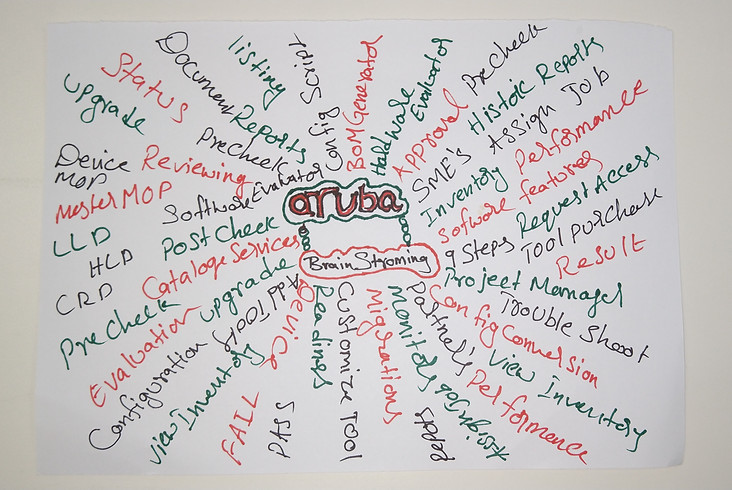 aruba
Brain Stroming
Upgrade
Status
Document Reports
listing
Config Script
BOM Generator
Hardware Evaluator
Approval
PreCheck
SME's
Historic Reports
Assign Job
Inventory
Performance
Sofware features
Request Access
9 Steps
Tool Purchase
Result
Project Manager
Trouble Shoot
Config Conversion
View Inventory
Partner's Performance
Monitors
Migrations
Reports
Customize Tool
Readings
Device
PASS
FAIL
App Tools
View Inventory
upgrade
Configuration
Evaluation
PreCheck
Cataloge Services
CRD
HLD
LLD
Post Check
Master MOP
Software Evaluator
Device MOP
Reviewing
Precheck